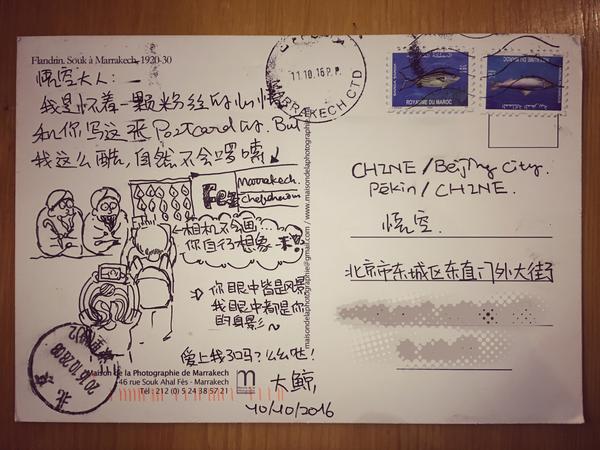 Flandrin. Souk à Marrakech, 1920-30
悟空大人：
我是怀着一颗粉丝的心情
和你写这张Postcard的. But
我这么酷,自然不会啰嗦!
Fes
Marrakech.
Chefchaouen
←相机不会画
你自行想象
你眼中皆是风景
我眼中都是你
的身影~
爱上我了吗?么么哒!
大鲸,
10/10/2016
Maison de la Photographie de Marrakech
46 rue Souk Ahal Fès - Marrakech
Tél : 212 (0) 5 24 38 57 21
maisondelaphotographie@gmail.com / www.maisondelaphotographie
11.10.16 P.P.
MARRAKECH CTD
ROYAUME DU MAROC
ROYAUME DU MAROC
CHINE/Beijing City.
Pékin/CHINE.
悟空.
北京市东城区东直门外大街
北京
2016.10.28.08